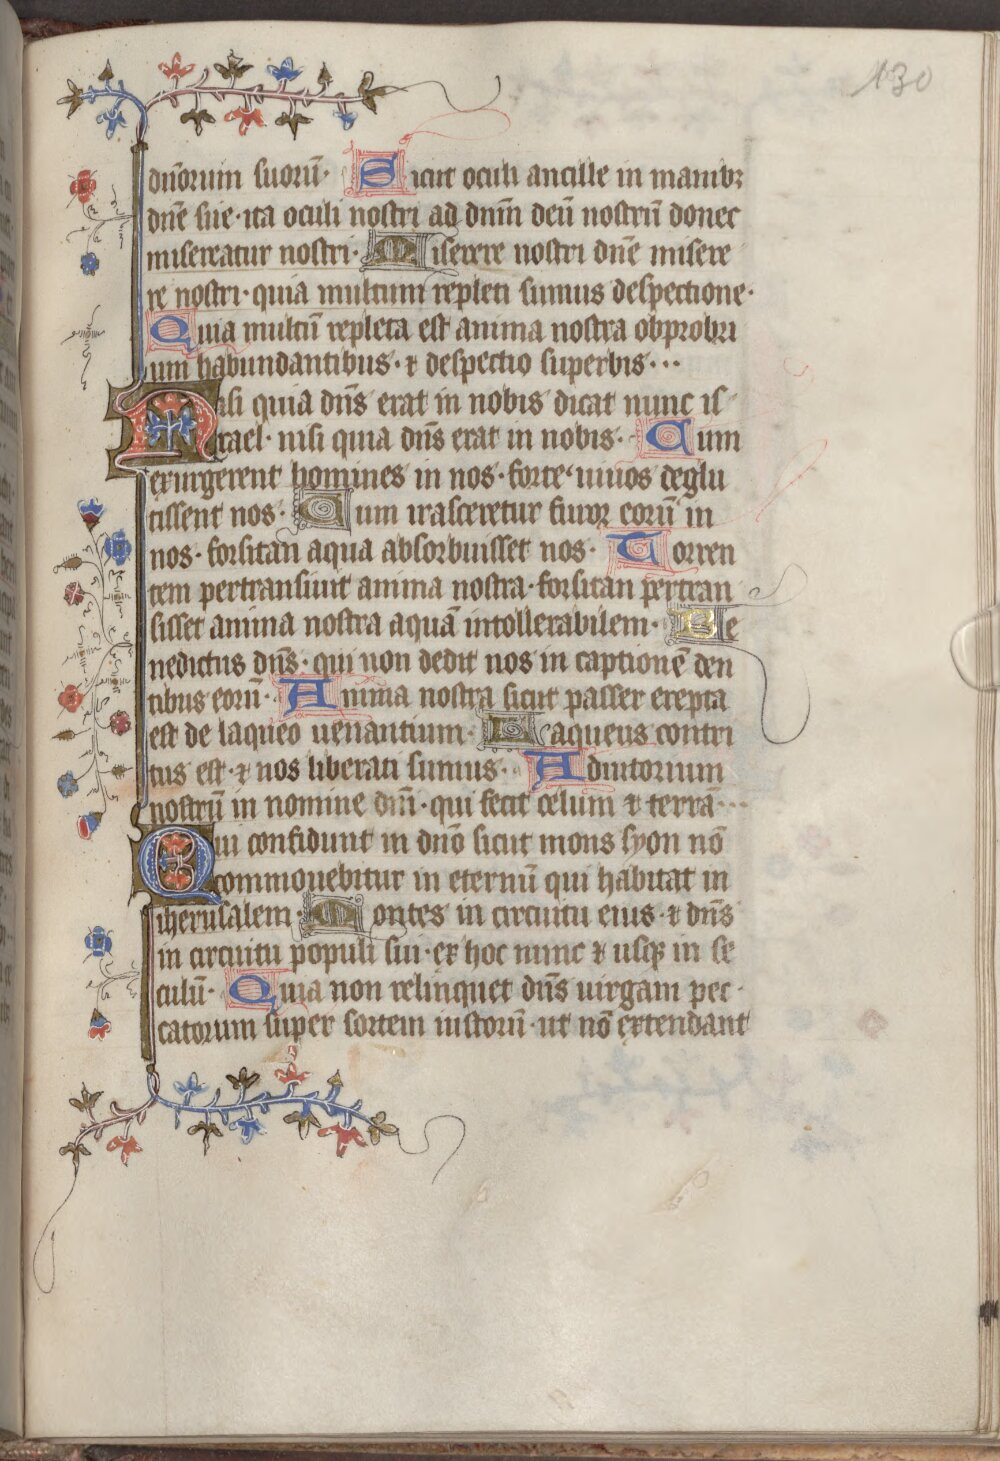 130
dn̄orum suorū· Sicut oculi ancille in manibꝫ
dn̄e sue·ita oculi nostri ad dnm̄ deū nostrū donec
misereatur nostri· Miserere nostri dn̄e misere
re nostri·quia multum repleti sumus despectione·
Quia multū repleta est anima nostra obprobri
um habundantibus·⁊ despectio superbis···
Nisi quia dn̄s erat in nobis dicat nunc is
rael·nisi quia dn̄s erat in nobis· Cum
exurgerent homines in nos·forte uiuos deglu
tissent nos· Cum irasceretur furor eorū in
nos·forsitan aqua absorbuisset nos· Torren
tem pertransiuit anima nostra·forsitan pertran
sisset anima nostra aquā intollerabilem· Be
nedictus dn̄s·qui non dedit nos in captionē den
tibus eorū· Anima nostra sicut passer erepta
est de laqueo uenantium· Laqueus contri
tus est·⁊ nos liberati sumus· Adiutorium
nostrū in nomine dn̄i·qui fecit celum ⁊ terrā···
Qui confidunt in dn̄o sicut mons syon nō
commouebitur in eternū qui habitat in
iherusalem· Montes in circuitu eius·⁊ dn̄s
in circuitu populi sui·ex hoc nunc ⁊ usqꝫ in se
culū· Quia non relinquet dn̄s uirgam pec
catorum super sortem iustorū·ut nō extendant